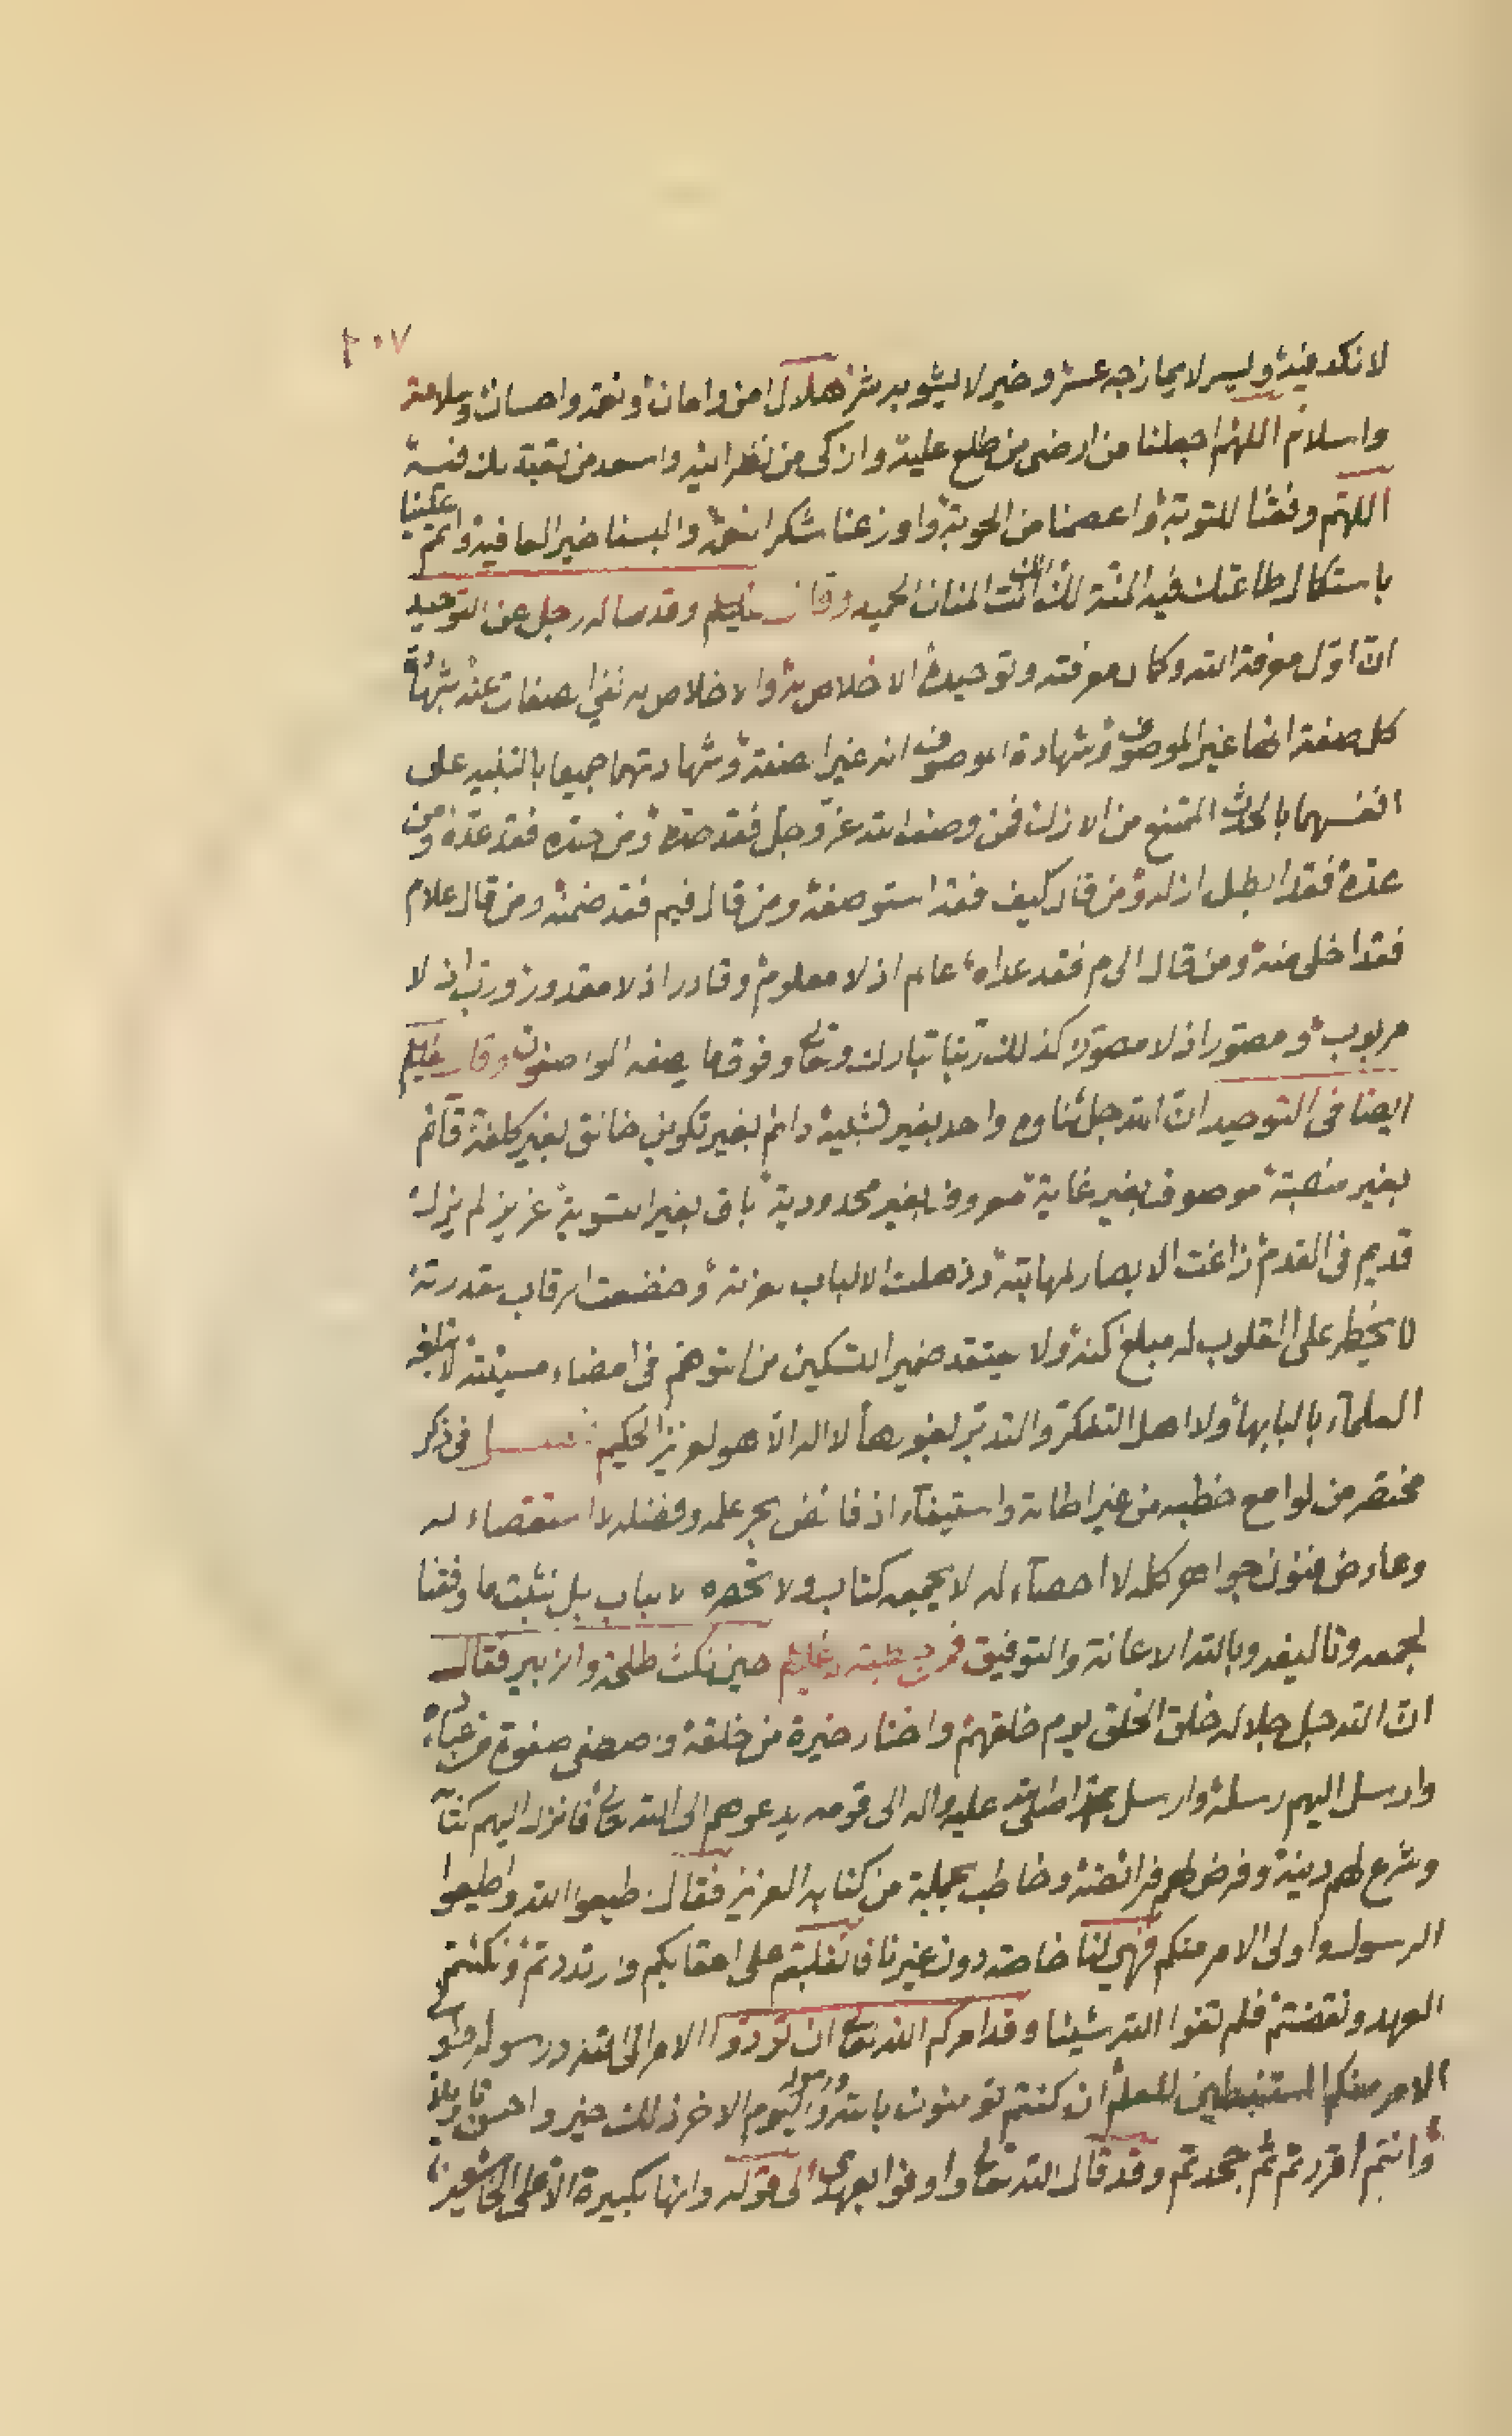 ٢٠٧
لا نكد فيه وليس لا يمازجه عسر وخير لا يشوبه شر هلال امن وامان ونعمة واحسان وسلامة
واسلام اللهم اجعلنا من ارضى من طلع عليه وازكى من نظر اليه واسعد من تعبد لك فيه
اللهم وفقنا للتوبة واعصمنا من الحوبة واوزعنا شكر النعمة والبسنا خير العافية واتمم علينا
باستكمال طاعتك فيه المنة لك انك انت المنان الحميد وقال عليلم وقد ساله رجل عن التوحيد
ان اول معرفة الله وكمال معرفته وتوحيده الاخلاص به والاخلاص به نفي الصفات عنه بشهادة
كل صفة انها غير الموصوف وشهادة الموصوف انه غير الصفة وشهادتهما جميعا بالتبليد على
انفسهما بالحدث الممتنع من الازل فمن وصف الله عز وجل فقد حده ومن حده فقد عده ومن
عده فقد ابطل ازله ومن قال كيف فقد استوصفه ومن قال فيم فقد ضمنه ومن قال علام
فقد اخلى منه ومن قال الى م فقد عداه عالم اذ لا معلوم وقادر اذ لا مقدور ورب اذ لا
مربوب ومصور اذ لا مصور كذلك ربنا تبارك وتعالى وفوق ما يصفه الواصفون وقال عليلم
ايضا فى التوحيد ان الله جل ثناوه واحد بغير تشبيه دائم بغير تكوين خالق بغير كلفة قائم
بغير منصبة موصوف بغير غاية معروف بغير محدودية باق بغير تسوية عزيز لم يزل
قديم فى القدم زاغت الابصار لمهابته وذهلت الالباب لعزته وخضعت الرقاب لقدرته
لا يخطر على القلوب له مبلغ كنه ولا يعتقد ضمير التسكين من التوهم فى امضاء مسيئته لا تبلغه
العلماء بالبابها ولا اهل التفكر والتدبر بغورها لا اله الا هو العزيز الحكيم فصل فى ذكر
مختصر من لوامع خطبه من غير اطالة واستيفاء اذ فائض بحر علمه وفضله لا استقصاء له
وعارض فنون جواهر كله لا احصاء له لا يجمعه كتاب ولا تحصره لا باب بل نثبت ما وفقنا
لجمعه وتاليفه وبالله الاعانة والتوفيق فمن خطبة له عليلم حين نكث طلحة والزبير فقال
ان الله جل جلاله خلق الخلق يوم خلقهم واختار خيرة من خلقه وصطفى صفوة من عباده
وارسل اليهم رسله وارسل محمدا صلى الله عليه واله الى قومه يدعوهم الى الله تعالى فانزل اليهم كتابا
وشرع لهم دينه وفرض لهم فرائضه وخاطب بجملة من كتابه العزيز فقال طيعوا الله واطيعوا
الرسول واولى الامر منكم فهي لنا خاصة دون غيرنا فانقلبتم على اعقابكم وارتددتم ونكثتم
العهد ونقضتم فلم تفوا الله شيئا وقد امركم الله تعالى ان تودوا الامر الى الله ورسوله واولى
الامر منكم المستنبطين للعلم ان كنتم تومنون بالله ورسوله واليوم الاخر ذلك خير واحسن تاويلا
وانتم اقررتم ثم جحدتم وقد قال الله تعالى واوفوا بعهدى الى قوله وانها لكبيرة الا على الخاشعين